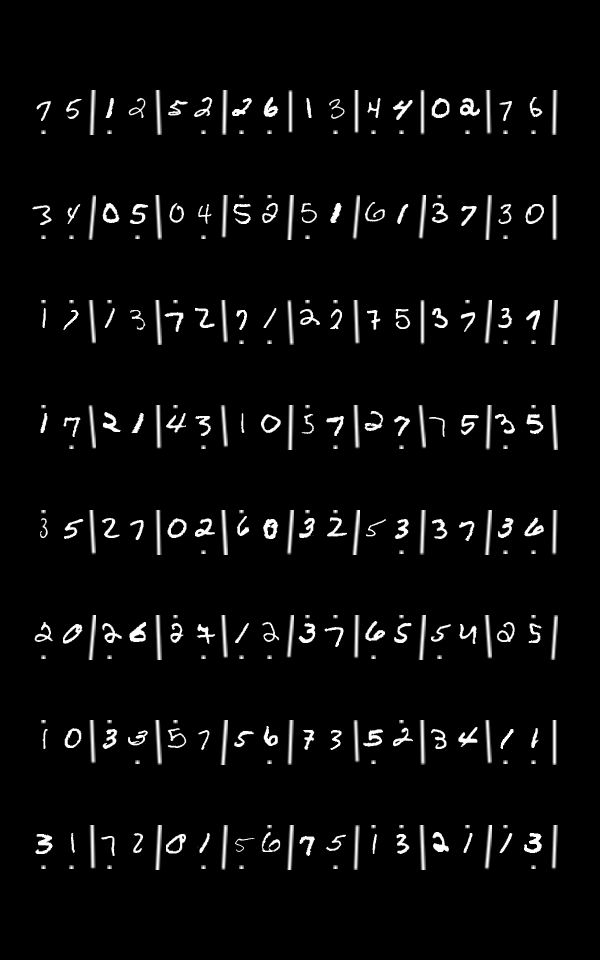 7̣ 5 | 1̣ 2 | 5 2̣ | 2̣ 6̣ | 1 3 | 4̣ 4̣ | 0 2̣ | 7̣ 6̣ |
3̣ 4̣ | 0 5̣ | 0 4̣ | 5̇ 2̇ | 5̣ 1 | 6 1 | 3̇ 7 | 3̣ 0 |
1̇ 7̇ | 1̇ 3 | 7̇ 2 | 7̣ 1̣ | 2̇ 2̇ | 7 5 | 3 7̇ | 3̣ 7̣ |
1̇ 7̣ | 2 1 | 4̇ 3 | 1 0 | 5̇ 7̣ | 2 7̣ | 7 5 | 3̣ 5̇ |
3̇ 5 | 2 7 | 0 2̣ | 6̇ 0 | 3̇ 2̇ | 5 3̣ | 3 7 | 3̣ 6̣ |
2̣ 0 | 2̣ 6 | 2̇ 7̣ | 1̣ 2̣ | 3̇ 7̇ | 6̣ 5̇ | 5̣ 4 | 2 5̇ |
1̇ 0 | 3̇ 3̣ | 5̇ 7 | 5̣ 6̣ | 7 3 | 5̣ 2̇ | 3 4 | 1̣ 1̣ |
3 1 | 7̣ 2 | 0 1̣ | 5̣ 6̇ | 7 5̣ | 1̇ 3̇ | 2 1̇ | 1̇ 3̣ |